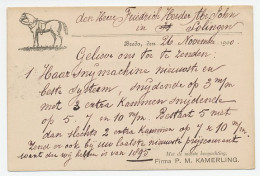 den Heer Friedrich Herder Abr Sohn
in Solingen
Breda, den 26 Novemb. 1910.
Gelieve ons te zenden:
1 Haarsnymachine nieuwste en
beste systeem, snydende op 3 m/m
met 2 extra kammen snydende
op 5. 7 en 10 m/m. Bestaat 5 met
dan slechts 2 extra kammen op 7 & 10 m/m.
Zend er ook bij uw laatste nieuwste prijscourant
want die wij hebben is van 1895
Met de meeste hoogachting,
Firma P. M. KAMERLING.